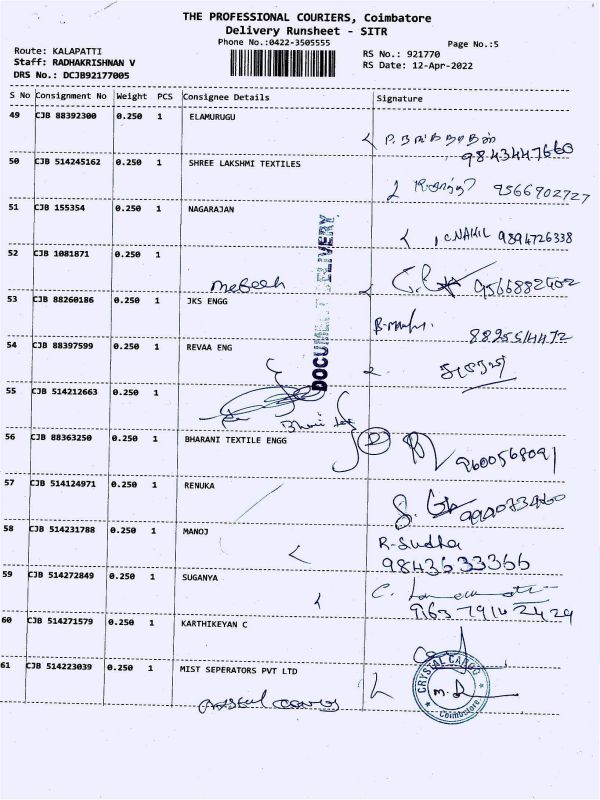 THE PROFESSIONAL COURIERS, Coimbatore
Delivery Runsheet - SITR
Phone No.:0422-3505555
Page No.:5
Route: KALAPATTI
Staff: RADHAKRISHNAN V
DRS No.: DCJB92177005
RS No.: 921770
RS Date: 12-Apr-2022
S No Consignment No Weight PCS Consignee Details Signature
49 CJB 88392300 0.250 1 ELAMURUGU
9843447660
50 CJB 514245162 0.250 1 SHREE LAKSHMI TEXTILES
9566902727
51 CJB 155354 0.250 1 NAGARAJAN
9894726338
52 CJB 1081871 0.250 1
53 CJB 88260186 0.250 1 JKS ENGG
54 CJB 88397599 0.250 1 REVAA ENG
DOCUMENT DELIVERY
55 CJB 514212663 0.250 1
56 CJB 88363250 0.250 1 BHARANI TEXTILE ENGG
9600568091
57 CJB 514124971 0.250 1 RENUKA
58 CJB 514231788 0.250 1 MANOJ
R-Sudha
9843633366
59 CJB 514272849 0.250 1 SUGANYA
60 CJB 514271579 0.250 1 KARTHIKEYAN C
61 CJB 514223039 0.250 1 MIST SEPERATORS PVT LTD
CRYSTAL CARGO
Coimbatore